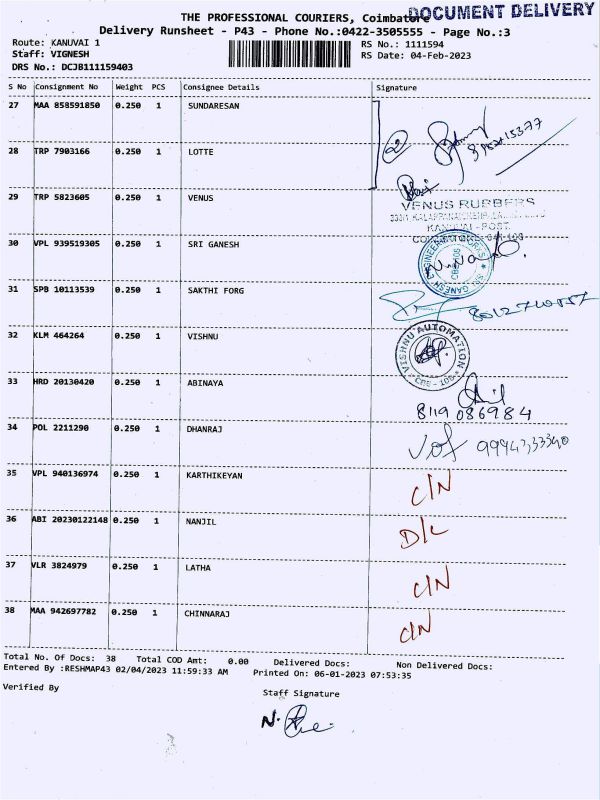 DOCUMENT DELIVERY
THE PROFESSIONAL COURIERS, Coimbatore
Delivery Runsheet - P43 - Phone No.:0422-3505555 - Page No.:3
Route: KANUVAI 1
Staff: VIGNESH
DRS No.: DCJB111159403
RS No.: 1111594
RS Date: 04-Feb-2023
S No Consignment No Weight PCS Consignee Details Signature
27 MAA 858591850 0.250 1 SUNDARESAN
28 TRP 7903166 0.250 1 LOTTE
29 TRP 5823605 0.250 1 VENUS
VENUS RUBBERS
KANUVAI-POST.
30 VPL 939519305 0.250 1 SRI GANESH
31 SPB 10113539 0.250 1 SAKTHI FORG
32 KLM 464264 0.250 1 VISHNU
VISHNU AUTOMATION
CBE - 108
33 HRD 20130420 0.250 1 ABINAYA
8119 086984
34 POL 2211290 0.250 1 DHANRAJ
35 VPL 940136974 0.250 1 KARTHIKEYAN C/N
36 ABI 20230122148 0.250 1 NANJIL D/L
37 VLR 3824979 0.250 1 LATHA C/N
38 MAA 942697782 0.250 1 CHINNARAJ C/N
Total No. Of Docs: 38 Total COD Amt: 0.00 Delivered Docs: Non Delivered Docs:
Entered By :RESHMAP43 02/04/2023 11:59:33 AM Printed On: 06-01-2023 07:53:35
Verified By
Staff Signature